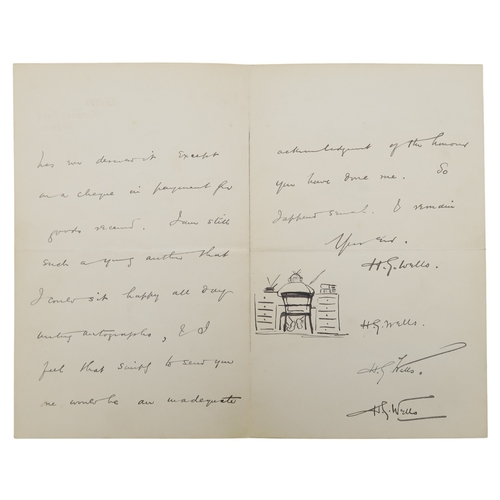 has ever desired it except
on a cheque in payment for
goods received. I am still
such a young author that
I could sit happy all day
writing autographs, & I
feel that simply to send you
one would be an inadequate
acknowledgment of the honour
you have done me. So
I append several. & remain
Yours sincl.
H.G. Wells.
H.G. Wells.
H.G. Wells.
H.G. Wells